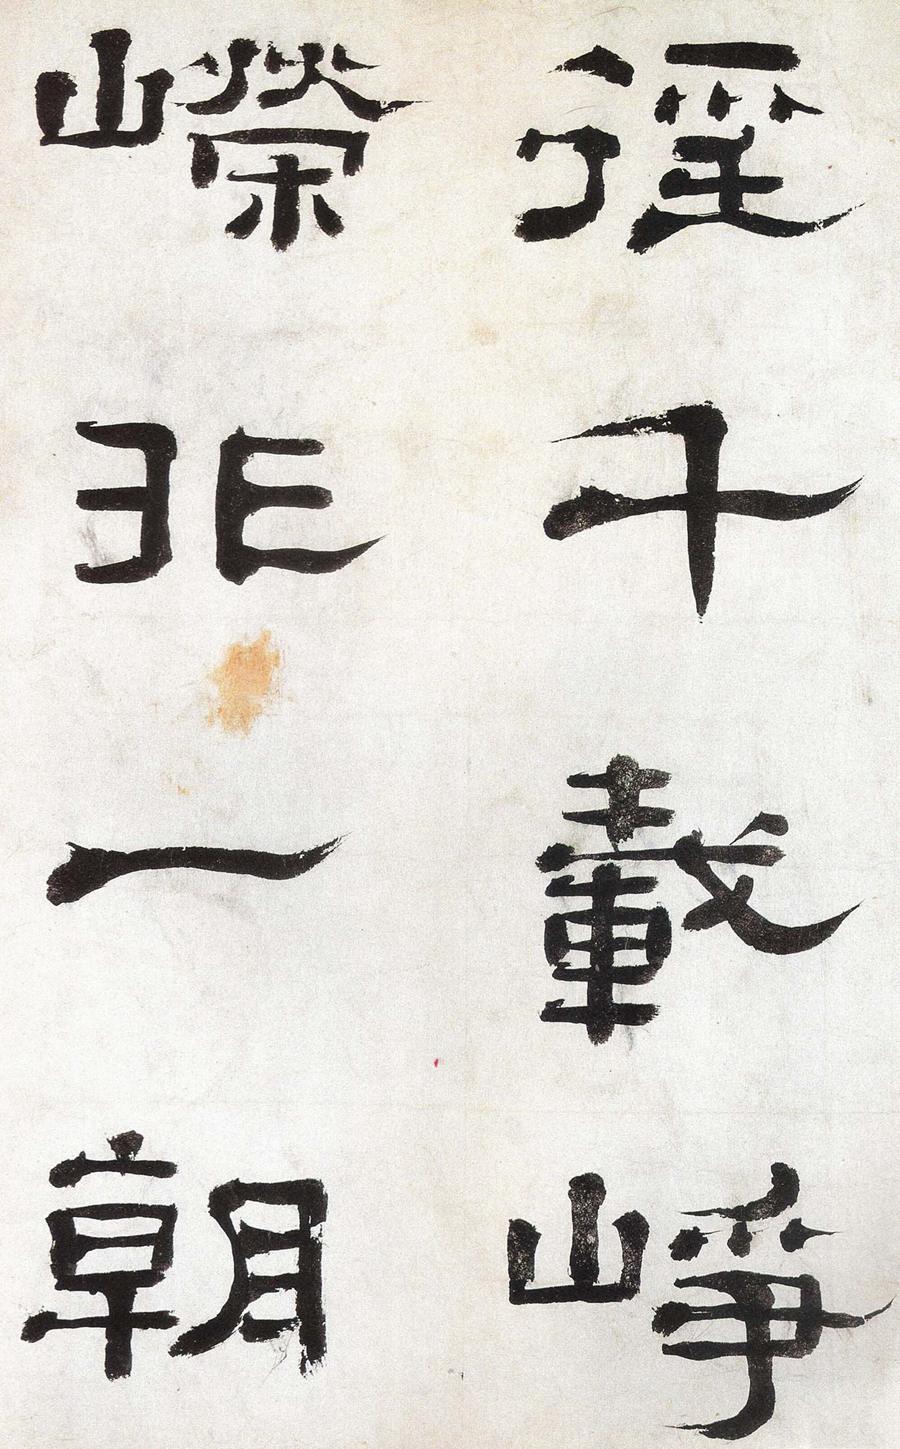 徑千載崢
嶸非一朝